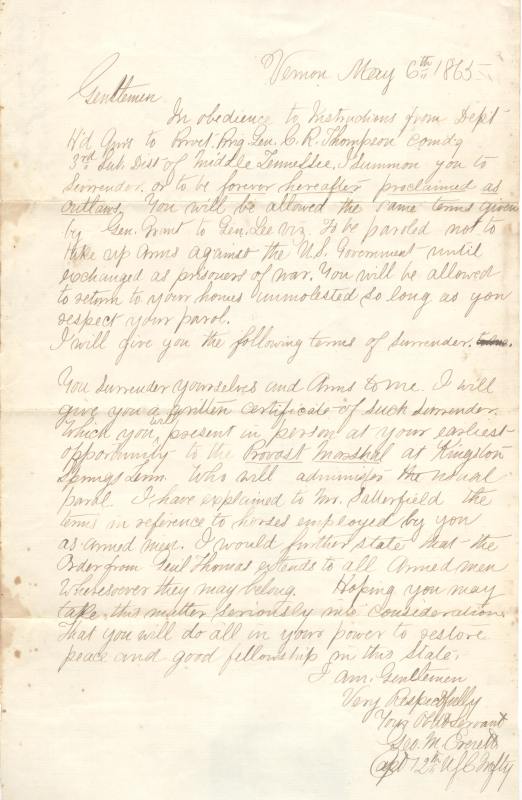 Vernon May 6th 1865
Gentlemen
In obedience to Instructions from Dept
Hd Qurs to Brvt. Brig. Gen. C. R. Thompson comdg
3rd Sub. Dist of Middle Tennessee. I summon you to
Surrender. or to be forever hereafter proclaimed as
outlaws. You will be allowed the same terms given
by Gen. Grant to Gen. Lee viz. To be paroled not to
take up Arms against the U.S. Government until
exchanged as prisoners of war. You will be allowed
to return to your homes unmolested so long as you
respect your parol.
I will give you the following terms of Surrender.
You Surrender yourselves and Arms to me. I will
give you a written certificate of such Surrender.
Which you will present in person at your earliest
opportunity to the Provost Marshal at Kingston
Springs Tenn. Who will administer the usual
parol. I have explained to Mr. Satterfield the
terms in reference to horses employed by you
as armed men. I would further state that the
Order from Genl Thomas extends to all Armed men
Wheresoever they may belong. Hoping you may
take this matter seriously into consideration
That you will do all in your power to restore
peace and good fellowship in this state.
I am. Gentlemen
Very Respectfully
Your Obt Servant
Geo. M. Everett
Capt 12th U.S.C. Infty